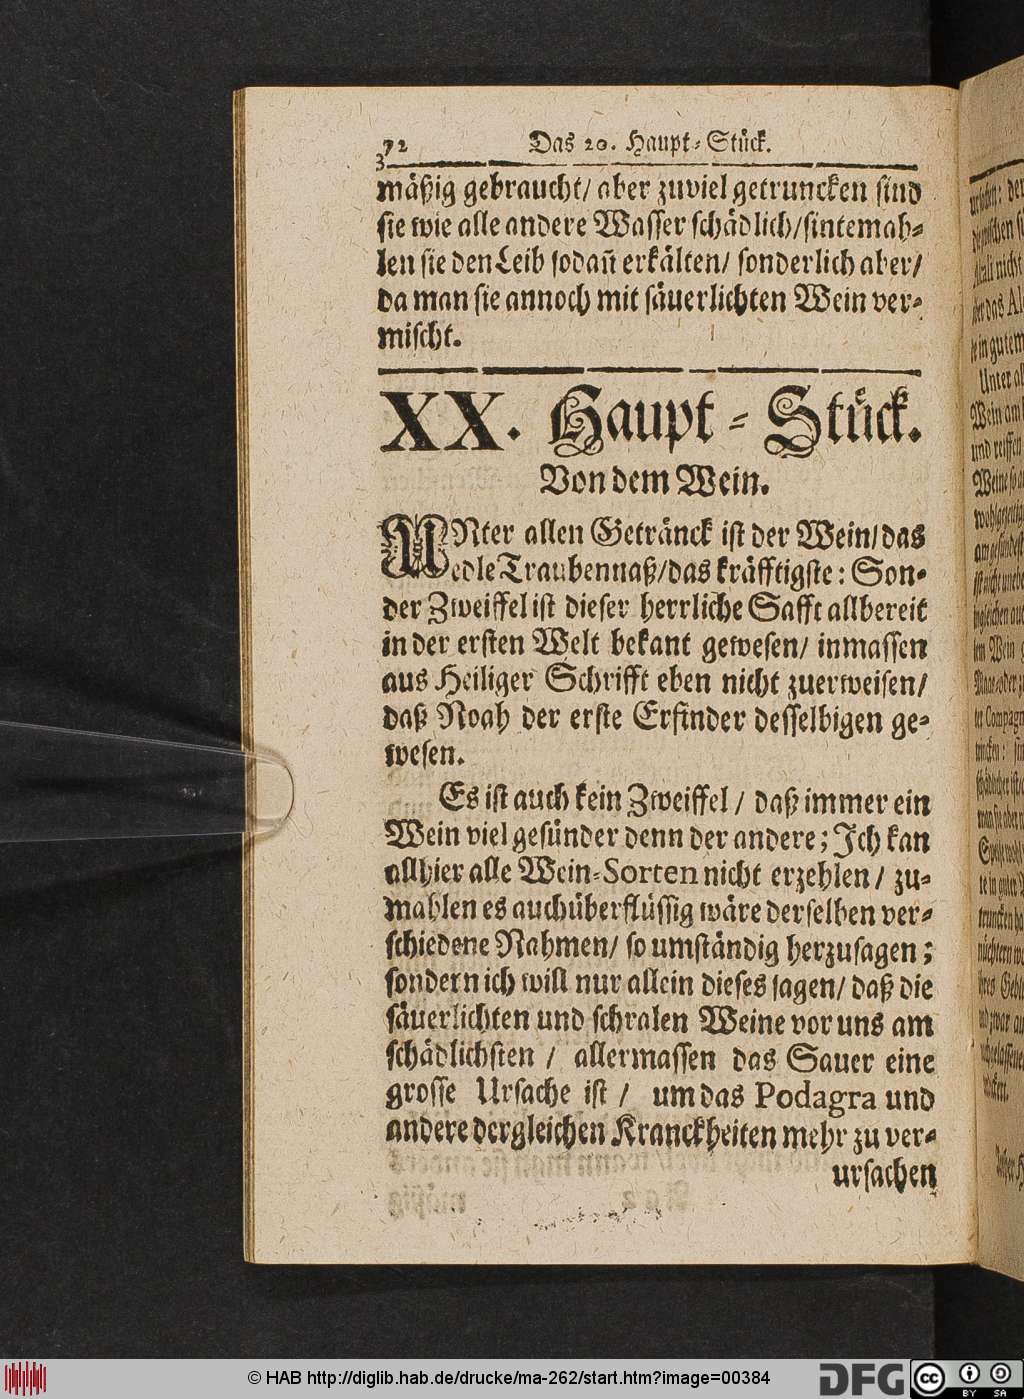 372 Das 20. Haupt-Stück.
mäßig gebraucht/ aber zuviel getruncken sind
sie wie alle andere Wasser schädlich/sintemah-
len sie den Leib sodañ erkälten/ sonderlich aber/
da man sie annoch mit säuerlichten Wein ver-
mischt.
XX. Haupt-Stück.
Von dem Wein.
UNter allen Getränck ist der Wein/das
edle Traubennaß/das kräfftigste: Son-
der Zweiffel ist dieser herrliche Safft allbereit
in der ersten Welt bekant gewesen/ inmassen
aus Heiliger Schrifft eben nicht zuerweisen/
daß Noah der erste Erfinder desselbigen ge-
wesen.
Es ist auch kein Zweiffel / daß immer ein
Wein viel gesünder denn der andere; Ich kan
allhier alle Wein-Sorten nicht erzehlen / zu-
mahlen es auch überflüssig wäre derselben ver-
schiedene Nahmen/ so umständig herzusagen;
sondern ich will nur allein dieses sagen/ daß die
säuerlichten und schralen Weine vor uns am
schädlichsten / allermassen das Sauer eine
grosse Ursache ist / um das Podagra und
andere dergleichen Kranckheiten mehr zu ver-
ursachen
© HAB http://diglib.hab.de/drucke/ma-262/start.htm?image=00384
DFG
cc BY SA